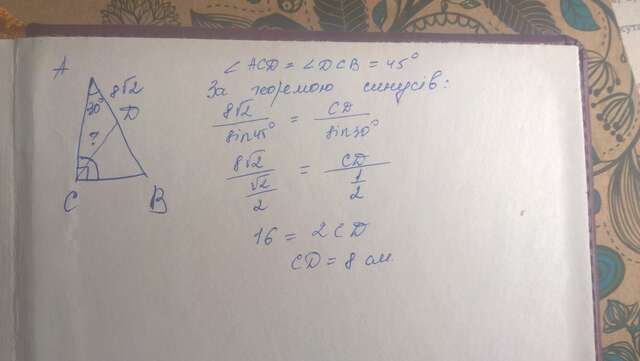 A
30°
8√2
?
D
C
B
∠ACD = ∠DCB = 45°
За теоремою синусів:
8√2 / sin45° = CD / sin30°
8√2 / (√2/2) = CD / (1/2)
16 = 2CD
CD = 8 см.